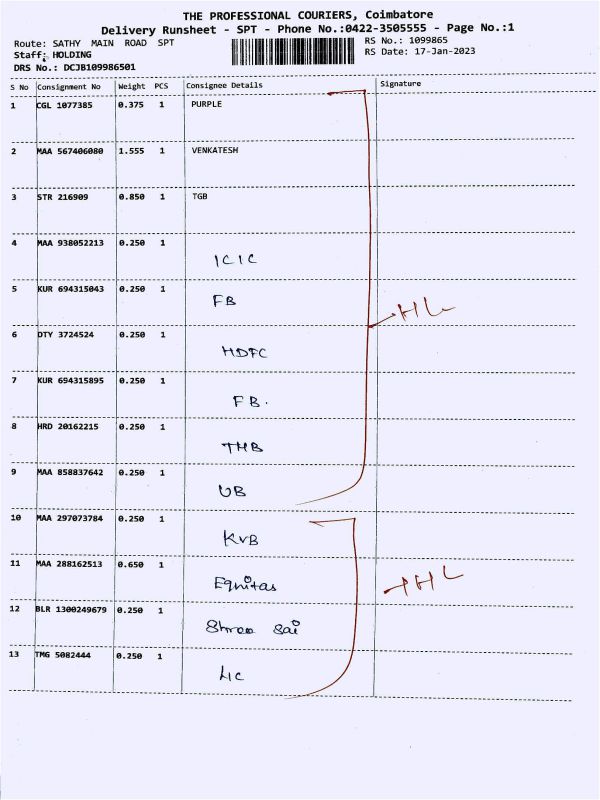 THE PROFESSIONAL COURIERS, Coimbatore
Delivery Runsheet - SPT - Phone No.:0422-3505555 - Page No.:1
Route: SATHY MAIN ROAD SPT
RS No.: 1099865
Staff: HOLDING
RS Date: 17-Jan-2023
DRS No.: DCJB109986501
S No Consignment No Weight PCS Consignee Details Signature
1 CGL 1077385 0.375 1 PURPLE
2 MAA 567406080 1.555 1 VENKATESH
3 STR 216909 0.850 1 TGB
4 MAA 938052213 0.250 1 ICIC
5 KUR 694315043 0.250 1 FB
HL
6 DTY 3724524 0.250 1 HDFC
7 KUR 694315895 0.250 1 FB.
8 HRD 20162215 0.250 1 TMB
9 MAA 858837642 0.250 1 UB
10 MAA 297073784 0.250 1 KVB
11 MAA 288162513 0.650 1 Equitas
HL
12 BLR 1300249679 0.250 1 Shree Sai
13 TMG 5082444 0.250 1 LIC